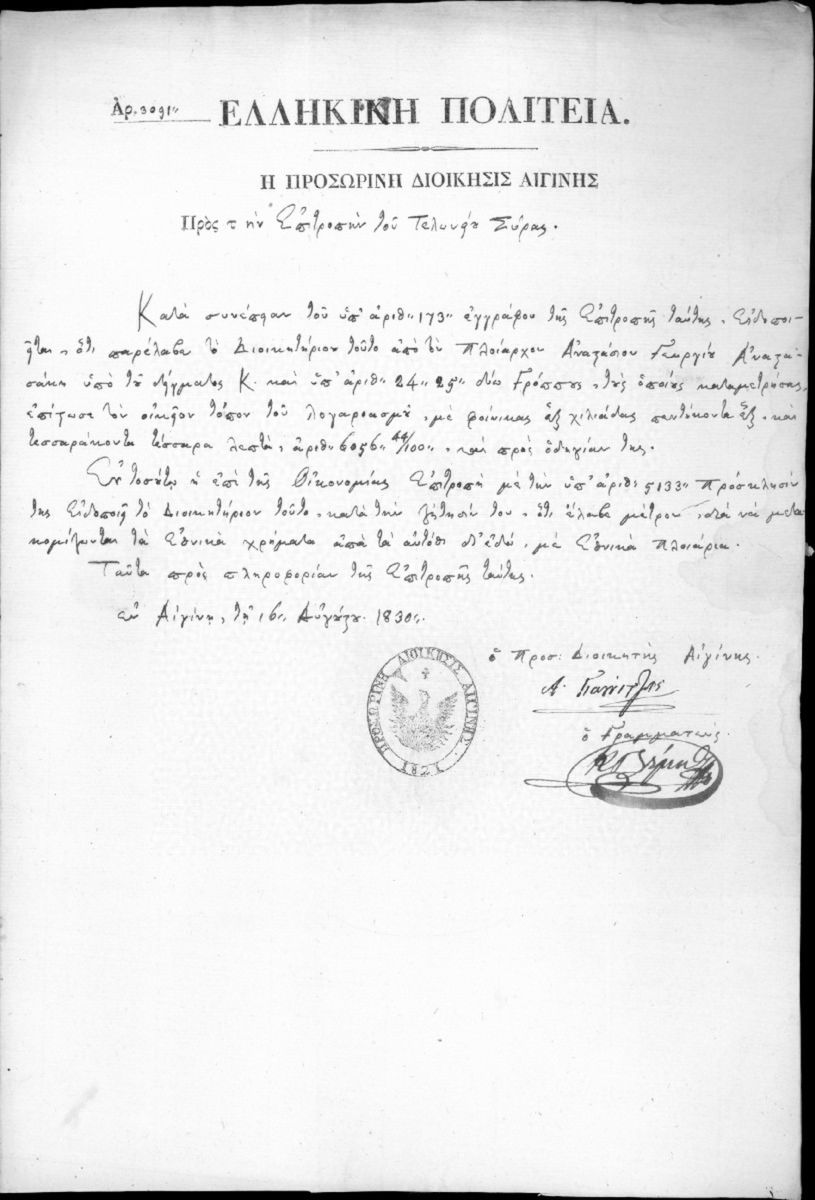 Ἀρ. 3091" ΕΛΛΗΚΙΚΗ ΠΟΛΙΤΕΙΑ.
Η ΠΡΟΣΩΡΙΝΗ ΔΙΟΙΚΗΣΙΣ ΑΙΓΙΝΗΣ
Πρὸς τ ὴν Ἐπιτροπὴν τοῦ Τελωνείου Σύρας.
Κατὰ συνέπειαν τοῦ ὑπ' ἀριθ" 173" ἐγγράφου τῆς Ἐπιτροπῆς ταύτης, Εἰδοποι-
εῖται, ὅτι παρέλαβε τὸ Διοικητήριον τοῦτο ἀπὸ τὸν Πλοίαρχον Ἀναστάσιον Γεωργίου Ἀναστα-
σάκη ὑπὸ τοῦ δείγματος Κ. καὶ ὑπ' ἀριθ" 24" 25" δύω Γρόππους, τοὺς ὁποίους καταμετρήσας,
ἐπίστωσε τὸν οἰκεῖον τόπον τοῦ λογαριασμοῦ, μὲ φοίνικας ἓξ χιλιάδας πεντήκοντα ἓξ, καὶ
τεσσαράκοντα τέσσαρα λεπτά, ἀριθ" 6056" 44/100", καὶ πρὸς ὁδηγίαν της.
Ἐν τοσούτῳ ἡ ἐπὶ τῆς Οἰκονομίας Ἐπιτροπὴ μὲ τὴν ὑπ' ἀριθ" 5133" Πρόσκλησίν
της Εἰδοποιεῖ τὸ Διοικητήριον τοῦτο, κατὰ τὴν ζήτησίν του, ὅτι ἔλαβε μέτρον, διὰ νὰ μετα
κομίζωνται τὰ Ἐθνικὰ χρήματα ἀπὸ τὰ αὐτόθι δ' ἐδῶ, μὲ Ἐθνικὰ Πλοιάρια.
Ταῦτα πρὸς πληροφορίαν τῆς Ἐπιτροπῆς ταύτης.
ἐν Αἰγίνῃ, τῇ 16" Αὐγούστου 1830".
ὁ Προσ: Διοικητὴς Αἰγίνης.
Α.
ὁ Γραμματεύς.
ΠΡΟΣΩΡΙΝΗ ΔΙΟΙΚΗΣΙΣ ΑΙΓΙΝΗΣ
1821